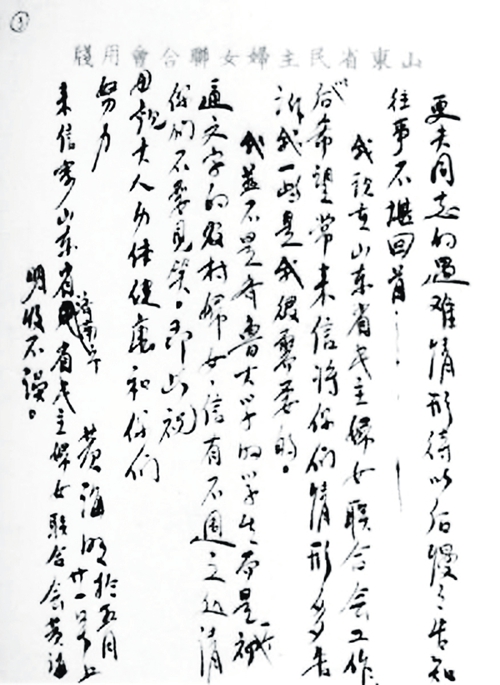 ③
山東省民主婦女聯合會用牋
更夫同志的遇难情形待以后慢々告知
往事不堪回首……
我现在山东省民主妇女联合会工作
以后希望常来信将你们情形多告
诉我一些是我很需要的。
我並不是齐鲁大学的学生而是一初
通文字的农村妇女，信有不週之处请
你们不要见笑。即此祝
大人身体健康和你们
努力
黄海明 拾五月廿一号上
来信寄山东省济南市省民主妇女联合会黄海
明收不误。